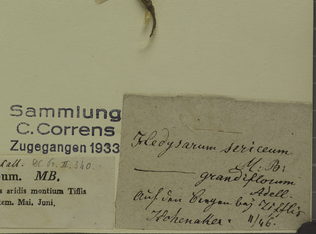 Sammlung
C. Correns
Zugegangen 1933
num. MB.
s aridis montium Tiflis
tem. Mai. Juni.
Hedysarum sericeum
M. B.
grandiflorum
Adell.
Auf den Bergen bei Tiflis
Hohenaker. II/46.